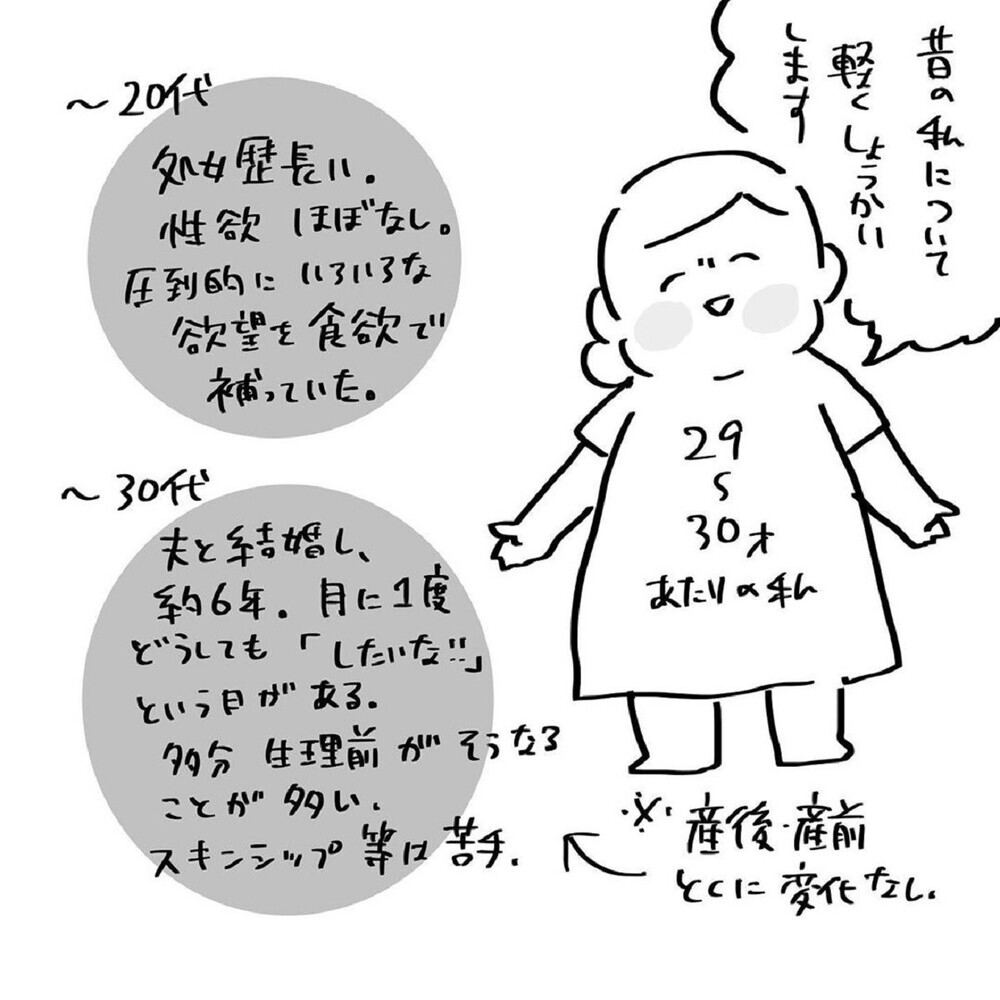 昔の私について
軽くしょうかい
します
～20代
処女歴長い。
性欲 ほぼなし。
圧倒的に いろいろな
欲望を食欲で
補っていた。
～30代
夫と結婚し、
約6年。月に1度
どうしても「したいな!!」
という日がある。
多分 生理前がそうなる
ことが多い、
スキンシップ等は苦手.
29
〜
30才
あたりの私
※ 産後・産前
とくに変化なし.